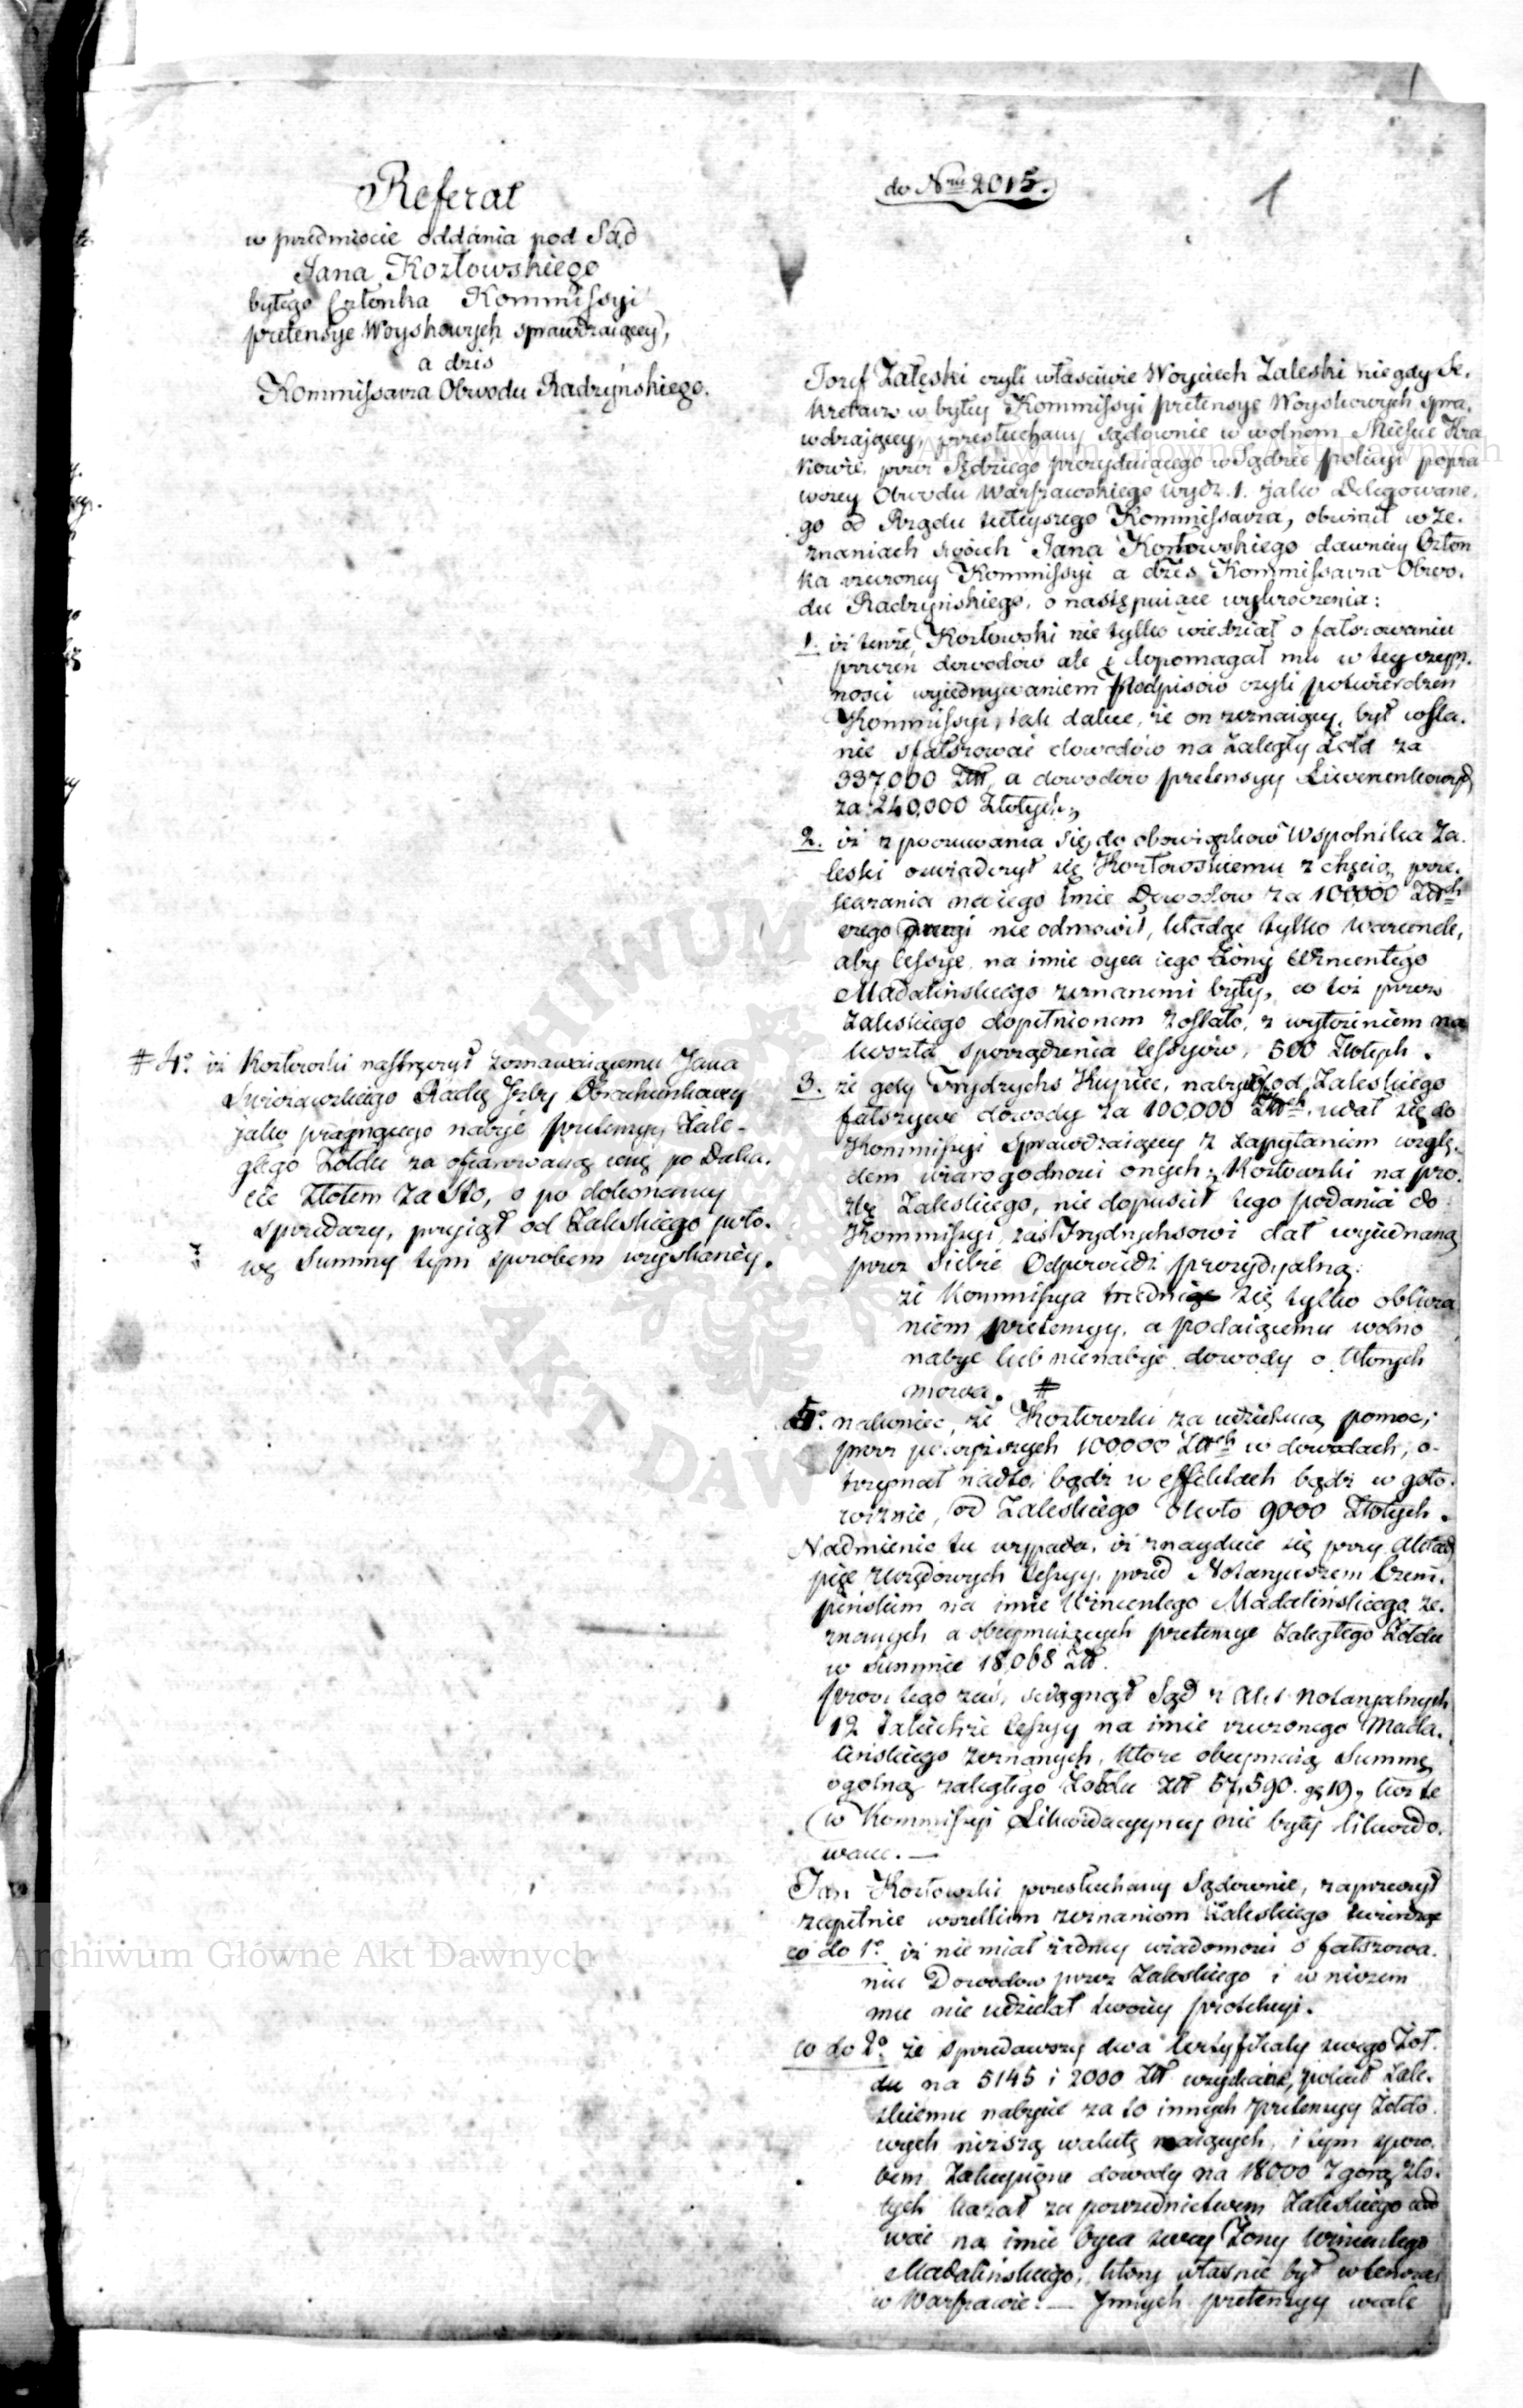 Referat
w przedmiocie oddania pod Sąd
Jana Kozłowskiego
byłego Członka Kommissyi
pretensye Woyskowych sprawdzaiącey,
a dziś
Kommissarza Obwodu Radzyńskiego.
do Nru 2015.
1
Jozef Załęski czyli właściwie Woyciech Zaleski niegdy Se-
kretarz w byłey Kommissyi pretensye Woyskowych spra-
wdzaiącey, przesłuchany sądownie w wolnem Mieście Kra
kowie, przez Sędziego prezyduiącego w Sądzie policyi popra
wczey Obwodu Warszawskiego wydz. 1. jako Delegowane-
go od Rządu tuteyszego Kommissarza, obwinił w ze-
znaniach swoich Jana Kozłowskiego dawniey Człon
ka rzeczoney Kommissyi a dziś Kommissarza Obwo-
du Radzyńskiego, o następuiące wykroczenia:
1. iż tenże Kozłowski nie tylko wiedział o fałszowaniu
przezeń dowodów ale i dopomagał mu w tey czyn-
ności wyiednywaniem Podpisów czyli potwierdzeń
Kommissyi, tak dalece, że on zeznaiący, był wsta-
nie sfałszować dowodów na zaległy Żołd za
337,000 Złł, a dowodów pretensyy Liwerunkowych
za 240,000 Złotych;
2. iż z poczuwania się do obowiązków Wspolnika Za-
leski oświadczył się Kozłowskiemu z chęcią prze-
kazania na iego Imie Dowodow za 100,000 Złłch
czego drugi nie odmowił, kładąc tylko warunek,
aby cessye na imie oyca iego Żony Wincentego
Madalińskiego zeznanemi były, co też przez
Zaleskiego dopełnionem zostało, z wyłożeniem na
koszta sporządzenia cessyów, 500 Złotych.
3. że gdy Frydrychs Kupiec, nabywszy od Zaleskiego
fałszywe dowody za 100,000 Złłch, udał się do
Kommissyi Sprawdzaiącey z zapytaniem wzglę-
dem wiarogodności onych; Kozłowski na pro-
zbę Zaleskiego, nie dopuścił tego podania do
Kommissyi, zaś Frydrychsowi dał wyiednaną
przez siebie Odpowiedź prezydyalną:
że Kommissya trudni się tylko oblicza
niem pretensyy, a podaiącemu wolno
nabyć lub nienabyć dowody o których
mowa. #
# 4o iż Kozłowski nastręczył zeznawaiącemu Jana
Swierzawskiego Radcę Izby Obrachunkowey
jako pragnącego nabyć pretensyy Zale-
głego Żołdu za ofiarowaną cenę po Duka-
cie złotem za Sto, o po dokonaney
sprzedaży, przyiął od Zaleskiego poło-
wę Summy tym sposobem uzyskaney.
5o nakoniec, że Kozłowski za udzieloną pomoc,
procz powyższych 100,000 Złłch w dowodach, o-
trzymał nadto, bądź w effektach bądź w goto-
wiźnie, od Zaleskiego około 9000 Złotych.
Nadmienić tu wypada, iż znayduie się przy Aktach
pięć urzędowych Cessyy, przed Notaryuszem Czem-
pińskim na imie Wincentego Madalińskiego ze-
znanych a obeymuiących pretensye zaległego Żołdu
w Summie 18,068 Złł.
procz tego zaś, ściągnął Sąd z Akt Notaryalnych
12 takichże Cessyy na imie rzeczonego Mada-
lińskiego zeznanych, które obeymuią Summę
ogolną zaległego Żołdu Złł 57,590. gr 19, lecz te
w Kommissyi Likwidacyyney nie były likwido-
wane. —
Jan Kozłowski przesłuchany Sądownie, zaprzeczył
zupełnie wszelkim zeznaniom Zaleskiego twierdząc
co do 1o iż nie miał żadney wiadomości o fałszowa-
niu Dowodow przez Zaleskiego i w niczem
mu nie udzielał swoiey protekcyi.
co do 2o że sprzedawszy dwa Certyfikaty swego Żoł-
du na 5145 i 2000 Złł uzyskane, polecił Zale-
skiemu nabycie za to innych pretensyy Żołdo-
wych niższą walutę maiących, i tym sposo-
bem Zakupione dowody na 18000 z gorą zło-
tych kazał za pośrednictwem Zaleskiego
na imie Oyca swey Żony Wincentego
Madalińskiego, który właśnie był wtenczas
w Warszawie. — Innych pretensyy wcale